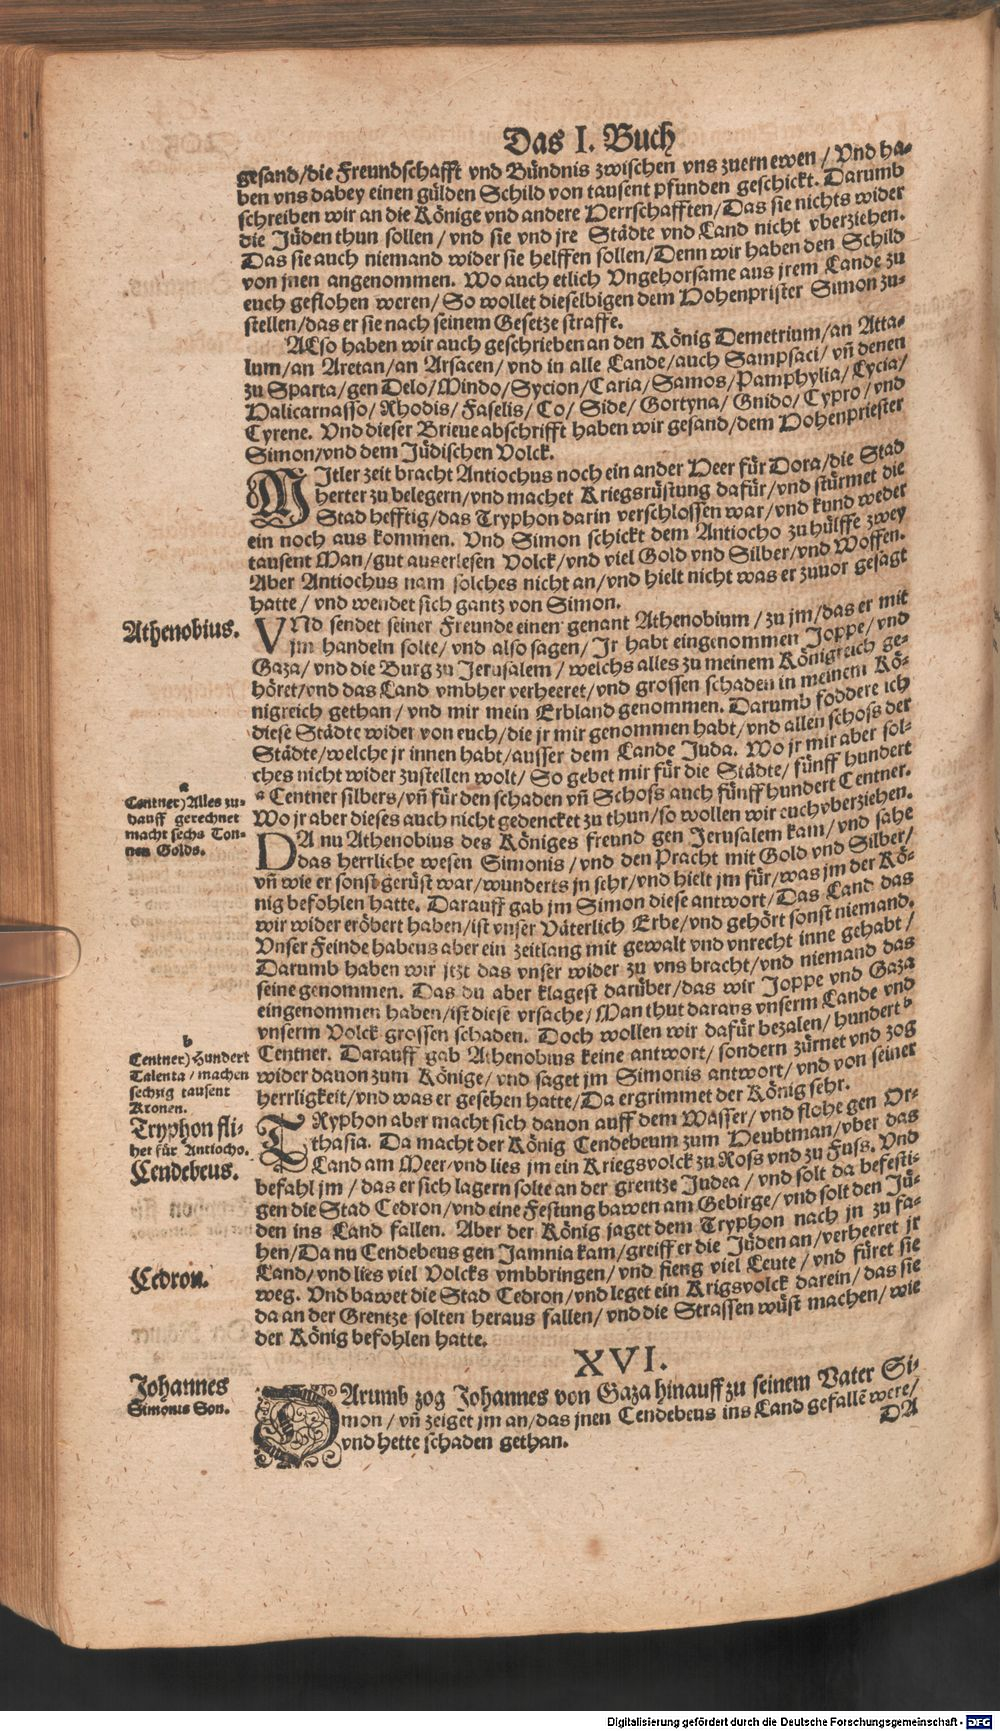 Das I. Buch
gesand/die Freundschafft vnd Bündnis zwischen vns zuernewen / Vnd ha-
ben vns dabey einen gülden Schild von tausent pfunden geschickt. Darumb
schreiben wir an die Könige vnd andere Herrschafften/Das sie nichts wider
die Jüden thun sollen / vnd sie vnd jre Städte vnd Land nicht vberziehen.
Das sie auch niemand wider sie helffen sollen/Denn wir haben den Schild
von jnen angenommen. Wo auch etlich Vngehorsame aus jrem Lande zu
euch geflohen weren/So wollet dieselbigen dem Hohenprister Simon zu-
stellen/das er sie nach seinem Gesetze straffe.
ALso haben wir auch geschrieben an den König Demetrium/an Atta-
lum/an Aretan/an Arsacen/vnd in alle Lande/auch Sampsaci/vñ denen
zu Sparta/gen Delo/Mindo/Sycion/Caria/Samos/Pamphylia/Lycia/
Halicarnasso/Rhodis/Faselis/Co/Side/Gortyna/Gnido/Cypro/vnd
Cyrene. Vnd dieser Brieue abschrifft haben wir gesand/dem Hohenpriester
Simon/vnd dem Jüdischen Volck.
MJtler zeit bracht Antiochus noch ein ander Heer für Dora/die Stad
herter zu belegern/vnd machet Kriegsrüstung dafür/vnd stürmet die
Stad hefftig/das Tryphon darin verschlossen war/vnd kund weder
ein noch aus kommen. Vnd Simon schickt dem Antiocho zu hülffe zwey
tausent Man/gut auserlesen Volck/vnd viel Gold vnd Silber/vnd Woffen.
Aber Antiochus nam solches nicht an/vnd hielt nicht was er zuuor gesagt
hatte / vnd wendet sich gantz von Simon.
Athenobius.
VNd sendet seiner Freunde einen genant Athenobium / zu jm/das er mit
jm handeln solte/ vnd also sagen/ Jr habt eingenommen Joppe/vnd
Gaza/ vnd die Burg zu Jerusalem / welchs alles zu meinem Königreich ge-
höret/vnd das Land vmbher verheeret/vnd grossen schaden in meinem Kö-
nigreich gethan / vnd mir mein Erbland genommen. Darumb foddere ich
diese Städte wider von euch/die jr mir genommen habt/vnd allen schoss der
Städte/welche jr innen habt/ausser dem Lande Juda. Wo jr mir aber sol-
ches nicht wider zustellen wolt/ So gebet mir für die Städte/ fünff hundert
a Centner silbers/vñ für den schaden vñ Schoss auch fünff hundert Centner.
Wo jr aber dieses auch nicht gedencket zu thun/so wollen wir euch vberziehen.
a
Centner) Alles zu-
hauff gerechnet
macht sechs Ton-
nen Golds.
DA nu Athenobius des Königes freund gen Jerusalem kam/ vnd sahe
das herrliche wesen Simonis / vnd den Pracht mit Gold vnd Silber/
vñ wie er sonst gerüst war/wunderts jn sehr/vnd hielt jm für/was jm der Kö-
nig befohlen hatte. Darauff gab jm Simon diese antwort/Das Land das
wir wider eröbert haben/ist vnser Väterlich Erbe/vnd gehört sonst niemand.
Vnser Feinde habens aber ein zeitlang mit gewalt vnd vnrecht inne gehabt/
Darumb haben wir jtzt das vnser wider zu vns bracht/vnd niemand das
seine genommen. Das du aber klagest darüber/das wir Joppe vnd Gaza
eingenommen haben/ist diese vrsache/Man thut daraus vnserm Lande vnd
vnserm Volck grossen schaden. Doch wollen wir dafür bezalen/hundert b
Centner. Darauff gab Athenobius keine antwort/ sondern zürnet vnd zog
wider dauon zum Könige/vnd saget jm Simonis antwort/vnd von seiner
herrligkeit/vnd was er gesehen hatte/Da ergrimmet der König sehr.
b
Centner) Hundert
Talenta / machen
sechzig tausent
Kronen.
Tryphon fli-
het für Antiocho.
Cendebeus.
TRyphon aber macht sich dauon auff dem Wasser/vnd flohe gen Or-
thasia. Da macht der König Cendebeum zum Heubtman/vber das
Land am Meer/vnd lies jm ein Kriegsvolck zu Ross vnd zu Fuss. Vnd
befahl jm / das er sich lagern solte an der grentze Judea / vnd solt da befesti-
gen die Stad Cedron/vnd eine Festung bawen am Gebirge/vnd solt den Jü-
den ins Land fallen. Aber der König jaget dem Tryphon nach jn zu fa-
hen/Da nu Cendebeus gen Jamnia kam/greiff er die Jüden an/verheeret jr
Land/vnd lies viel Volcks vmbbringen/vnd fieng viel Leute / vnd füret sie
weg. Vnd bawet die Stad Cedron/vnd leget ein Krigsvolck darein/das sie
da an der Grentze solten heraus fallen/vnd die Strassen wüst machen/wie
der König befohlen hatte.
Cedron.
XVI.
Johannes
Simonis Son.
DArumb zog Johannes von Gaza hinauff zu seinem Vater Si-
mon / vñ zeiget jm an/das jnen Cendebeus ins Land gefallē were/
vnd hette schaden gethan.
DA
Digitalisierung gefördert durch die Deutsche Forschungsgemeinschaft - DFG